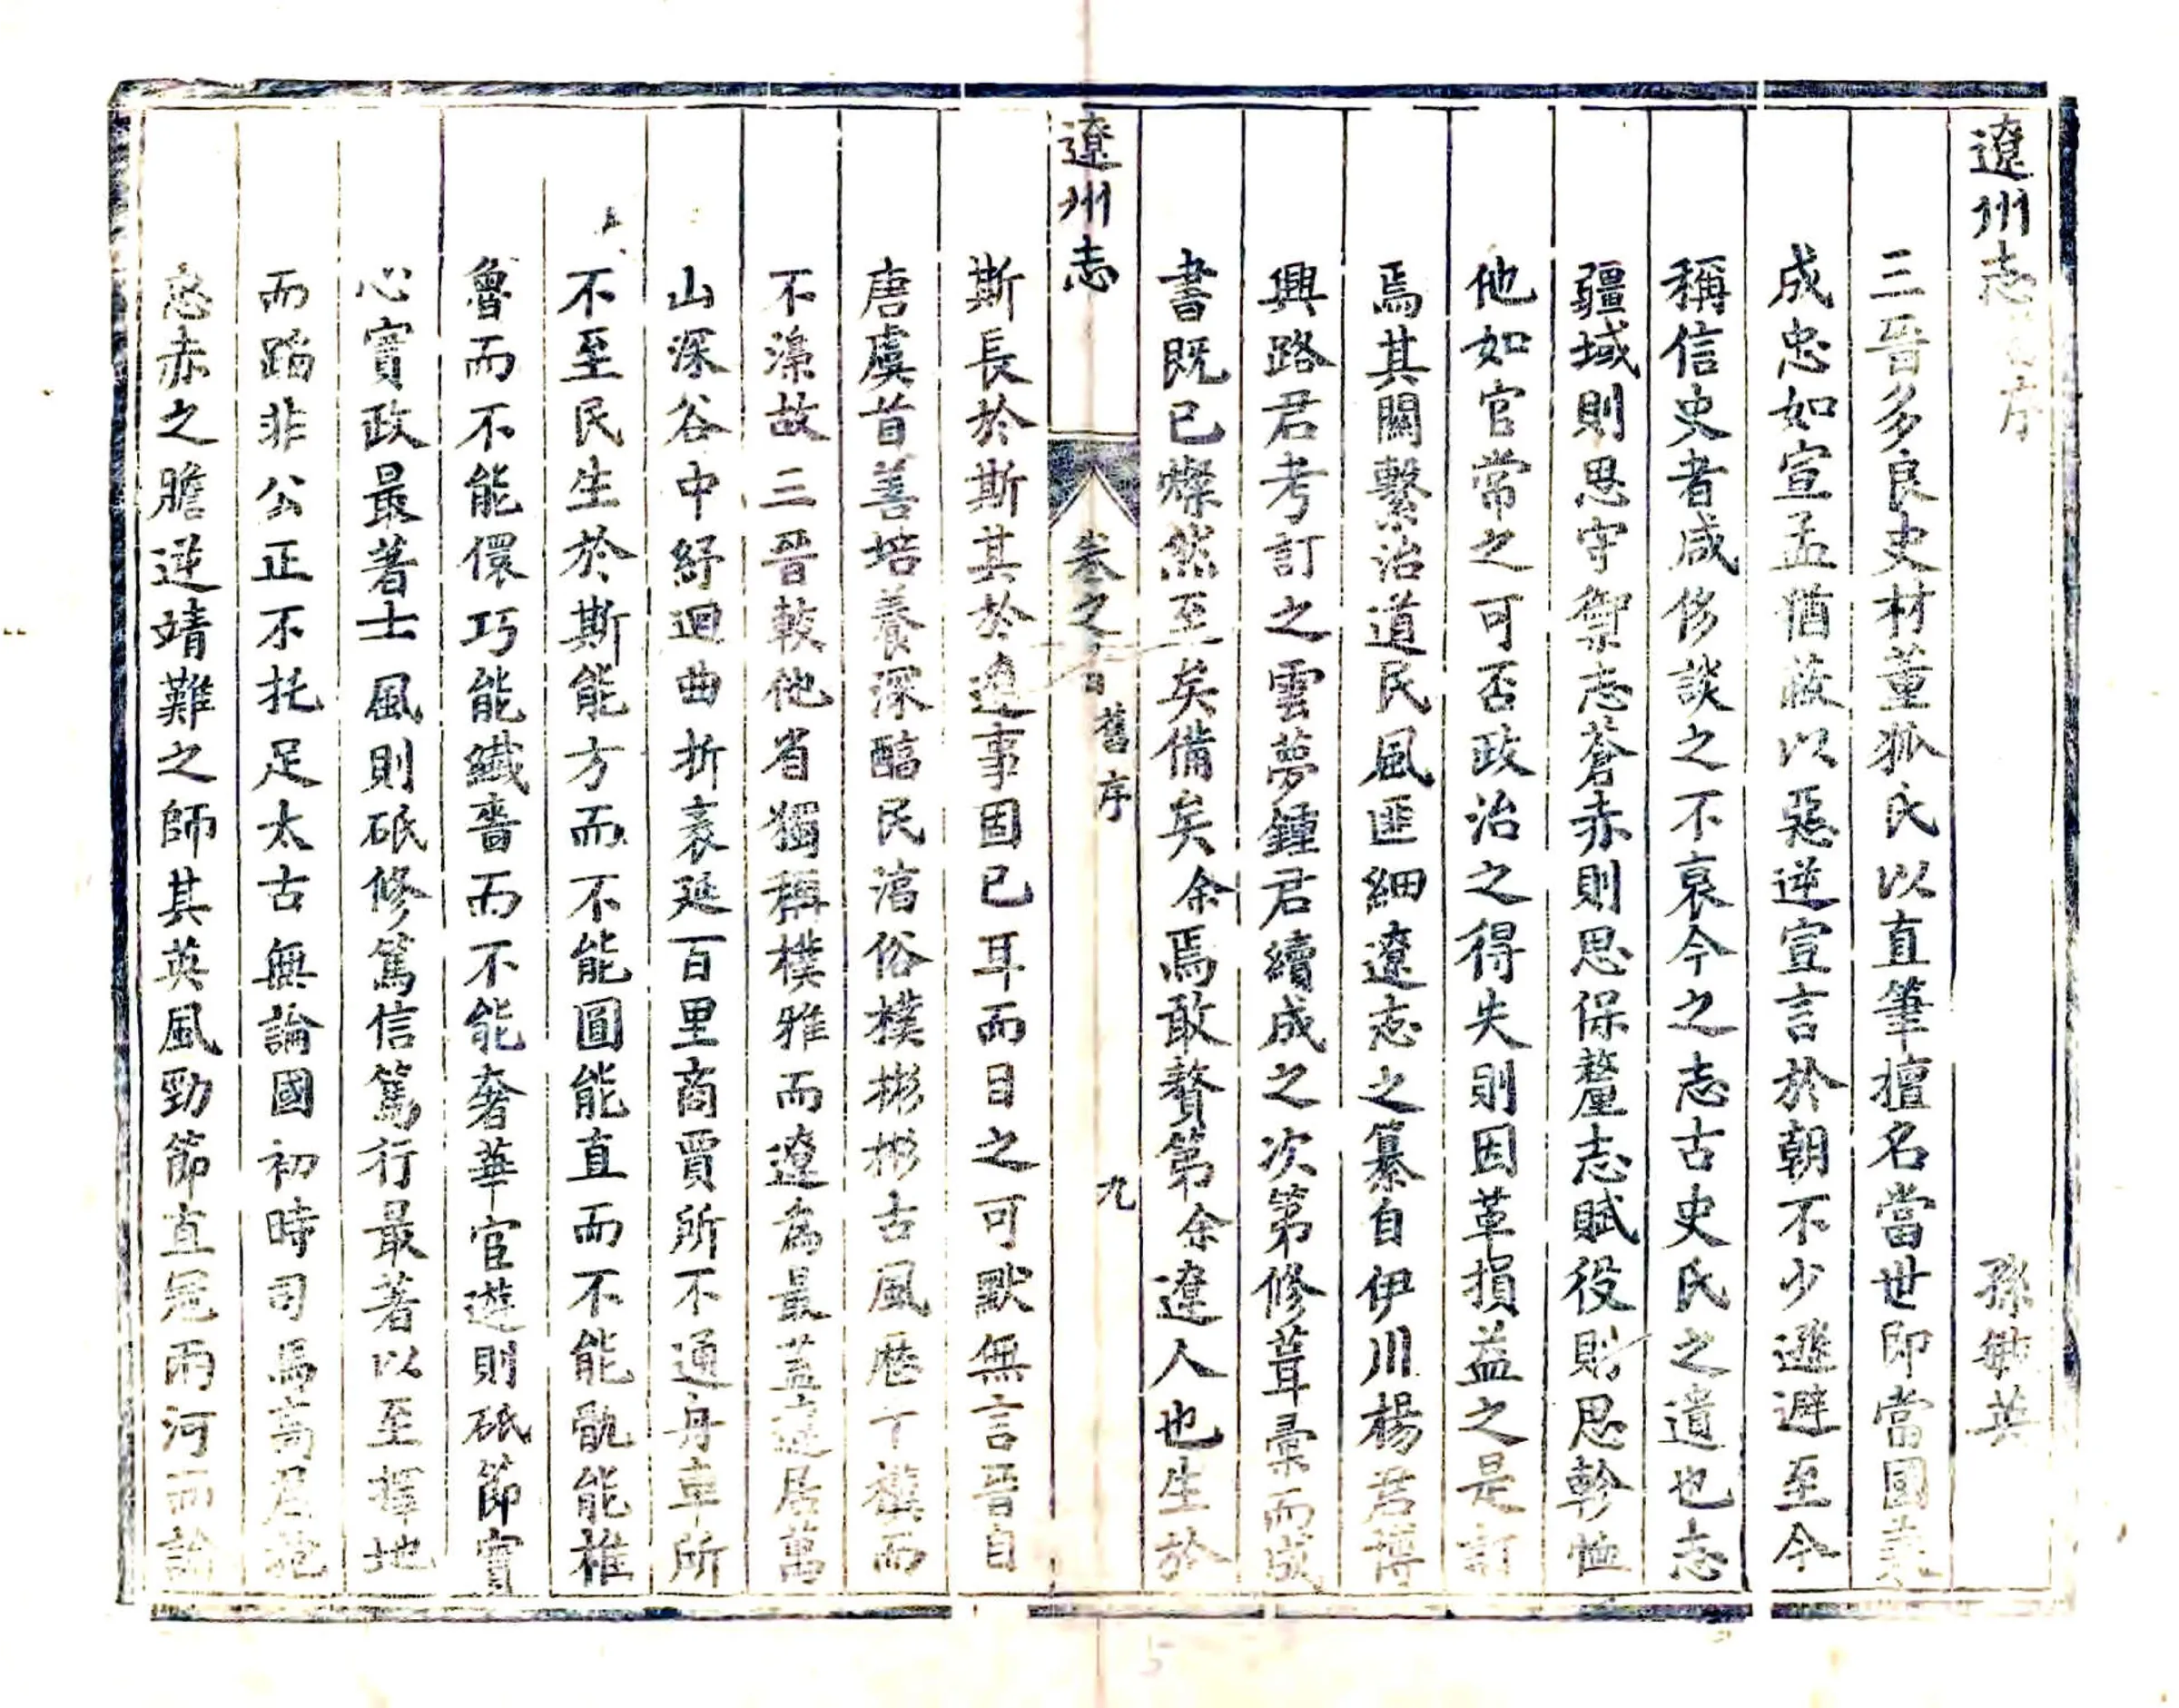 遼州志舊序 孫毓英
三晉多良史材董狐氏以直筆擅名當世即當國義
成忠如宣孟猶蔽以惡逆宣言於朝不少遜避至今
稱信史者咸侈談之不衰今之志古史氏之遺也志
疆域則思守禦志蒼赤則思保釐志賦役則思軫恤
他如官常之可否政治之得失則因革損益之是訂
焉其關繫治道民風匪細遼志之纂自伊川楊君博
興路君考訂之雲夢鍾君續成之次第修葺彙而成
書既已燦然至矣備矣余焉敢贅第余遼人也生於
遼州志 卷之首 舊序 九
斯長於斯其於遼事固已耳而目之可默無言晉自
唐虞首善培養深醕民淳俗樸彬彬古風歷下樸而
不澡故三晉較他省獨稱樸雅而遼為最蓋遼居萬
山深谷中紆迴曲折袤延百里商賈所不通舟車所
不至民生於斯能方而不能圓能直而不能骫能椎
魯而不能儇巧能纖嗇而不能奢華官遊則砥節實
心實政最著士風則砥修篤信篤行最著以至擇地
而蹈非公正不托足太古無論國初時司馬高君抱
忠赤之膽逆靖難之師其英風勁節直冠兩河而論